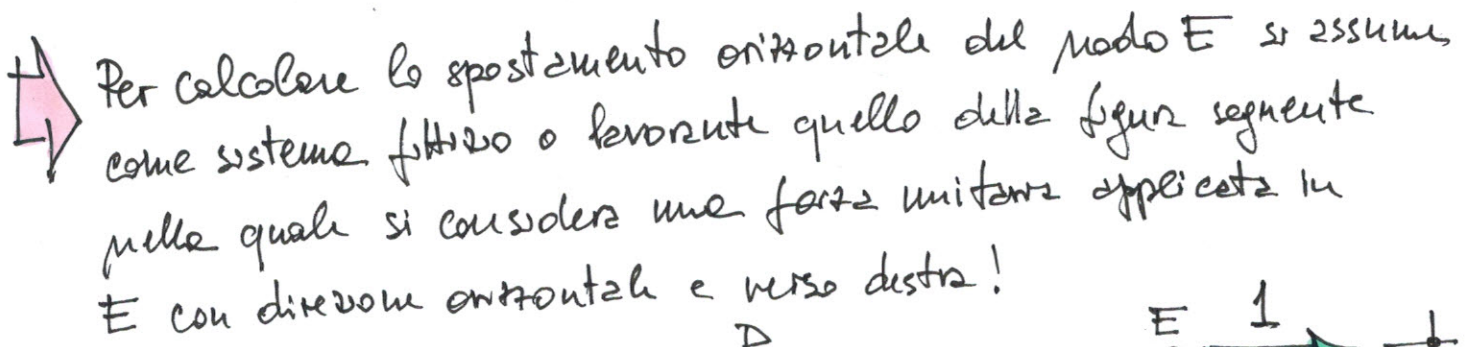 Per calcolare lo spostamento orizzontale del nodo E si assume,
come sistema fittizio o lavorante quello della figura seguente
nella quale si considera una forza unitaria applicata in
E con direzione orizzontale e verso destra!
D
E 1